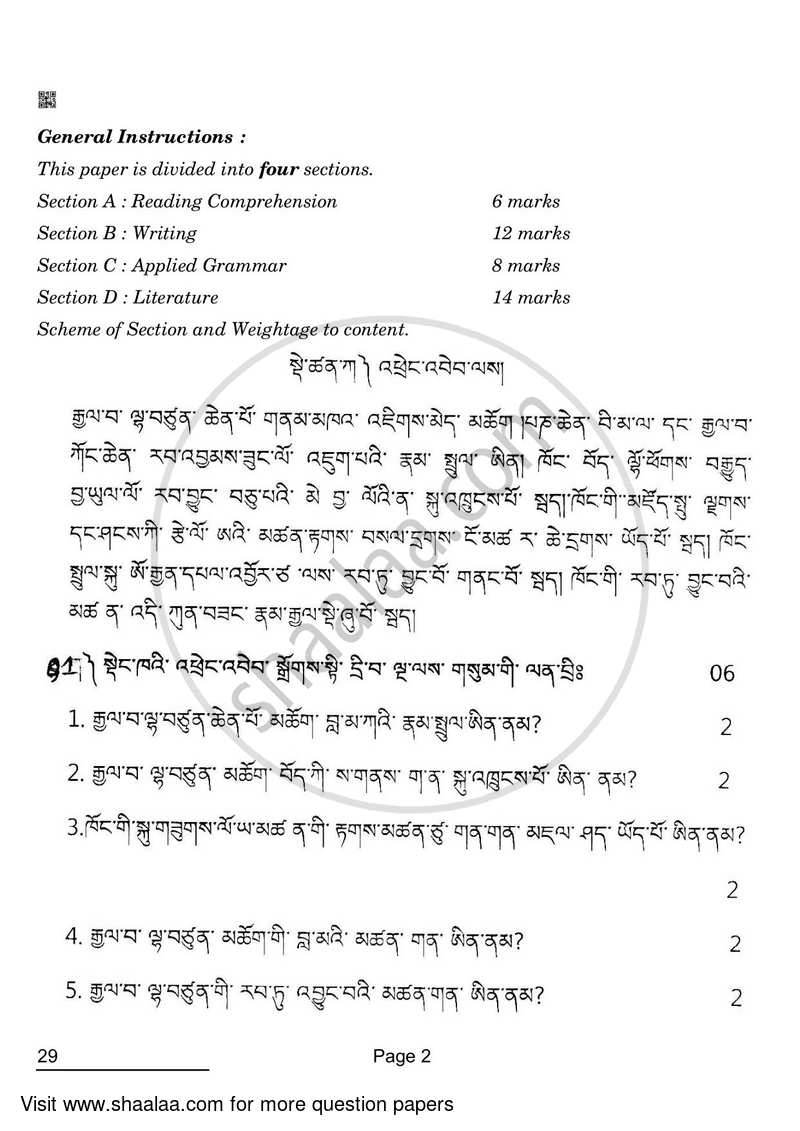 General Instructions :
This paper is divided into four sections.
Section A : Reading Comprehension 6 marks
Section B : Writing 12 marks
Section C : Applied Grammar 8 marks
Section D : Literature 14 marks
Scheme of Section and Weightage to content.
སྡེ་ཚན་ཀ༽ འཕྲེང་འབེབ་ལས།
རྒྱལ་བ་ ལྷ་བཙུན་ ཆེན་པོ་ གནམ་མཁའ་ འཇིགས་མེད་ མཆོག །པཎ་ཆེན་ བི་མ་ལ་ དང་ རྒྱལ་བ་
ཀོང་ཆེན་ རབ་འབྱམས་ཟུང་ལོ་ འདུག་པའི་ རྣམ་ སྤྲུལ་ ཨིན། ཁོང་ བོད་ ལྷོ་ཕོགས་ བརྒྱུད་
བྱ་ཡུལ་ལོ་ རབ་བྱུང་ བཅུ་པའི་ མེ་ བྱ་ ལོའི་ན་ སྐུ་འཁྲུངས་པོ་ སྦད།ཁོང་གི་མཛོད་སྤུ་ ལྗགས་
དང་ཤངས་ཀི་ རྩེ་ལོ་ ཨའི་ མཚན་རྟགས་ བསལ་དྲགས་ ངོ་མཚ ར་ ཆེ་དྲགས་ ཡོད་པོ་ སྦད། ཁོང་
སྤྲུལ་སྐུ་ ཨོ་རྒྱན་དཔལ་འབྱོར་ཙ་ ལས་ རབ་ཏུ་ བྱུང་བོ་ གནང་བོ་ སྦད། ཁོང་གི་ རབ་ཏུ་ བྱུང་བའི་
མཚ ན་ འདི་ ཀུན་བཟང་ རྣམ་རྒྱལ་སྡེ་ཞུ་བོ་ སྦད།
༽ སྟེང་ཁའི་ འཕྲེང་འབེབ་ སྒྲོགས་སྟི་ དྲི་བ་ ལྔ་ལས་ གསུམ་གི་ ལན་བྲིཿ 06
1. རྒྱལ་བ་ལྷ་བཙུན་ཆེན་པོ་ མཆོག་ བླ་མ་ཀའི་ རྣམ་སྤྲུལ་ཨིན་ནམ? 2
2. རྒྱལ་བ་ ལྷ་བཙུན་ མཆོག་ བོད་ཀི་ ས་གནས་ ག་ན་ སྐུ་འཁྲུངས་པོ་ ཨིན་ ནམ? 2
3.ཁོང་གི་སྐུ་གཟུགས་ལོ་ཡ་མཚ ན་གི་ རྟགས་མཚན་ཙུ་ གན་གན་ མཇལ་ ཤད་ ཡོད་པོ་ ཨིན་ནམ?
2
4. རྒྱལ་བ་ ལྷ་བཙུན་ མཆོག་གི་ བླ་མའི་ མཚན་ གན་ ཨིན་ནམ? 2
5. རྒྱལ་བ་ ལྷ་བཙུན་གི་ རབ་ཏུ་ འབྱུང་བའི་ མཚན་གན་ ཨིན་ནམ? 2
29 Page 2
Visit www.shaalaa.com for more question papers
shaalaa.com